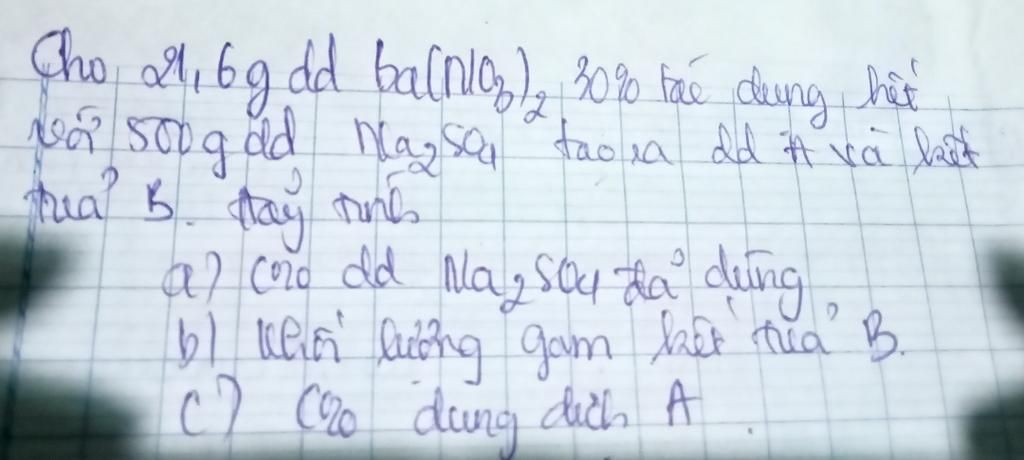 Cho 21,6g dd ba(NO3)2 30% tác dụng hết
với 500g dd Na2SO4 tạo ra dd A và kết
tủa B. Hãy tính
a) C% dd Na2SO4 đã dùng
b) khối lượng gam kết tủa B.
c) C% dung dịch A.